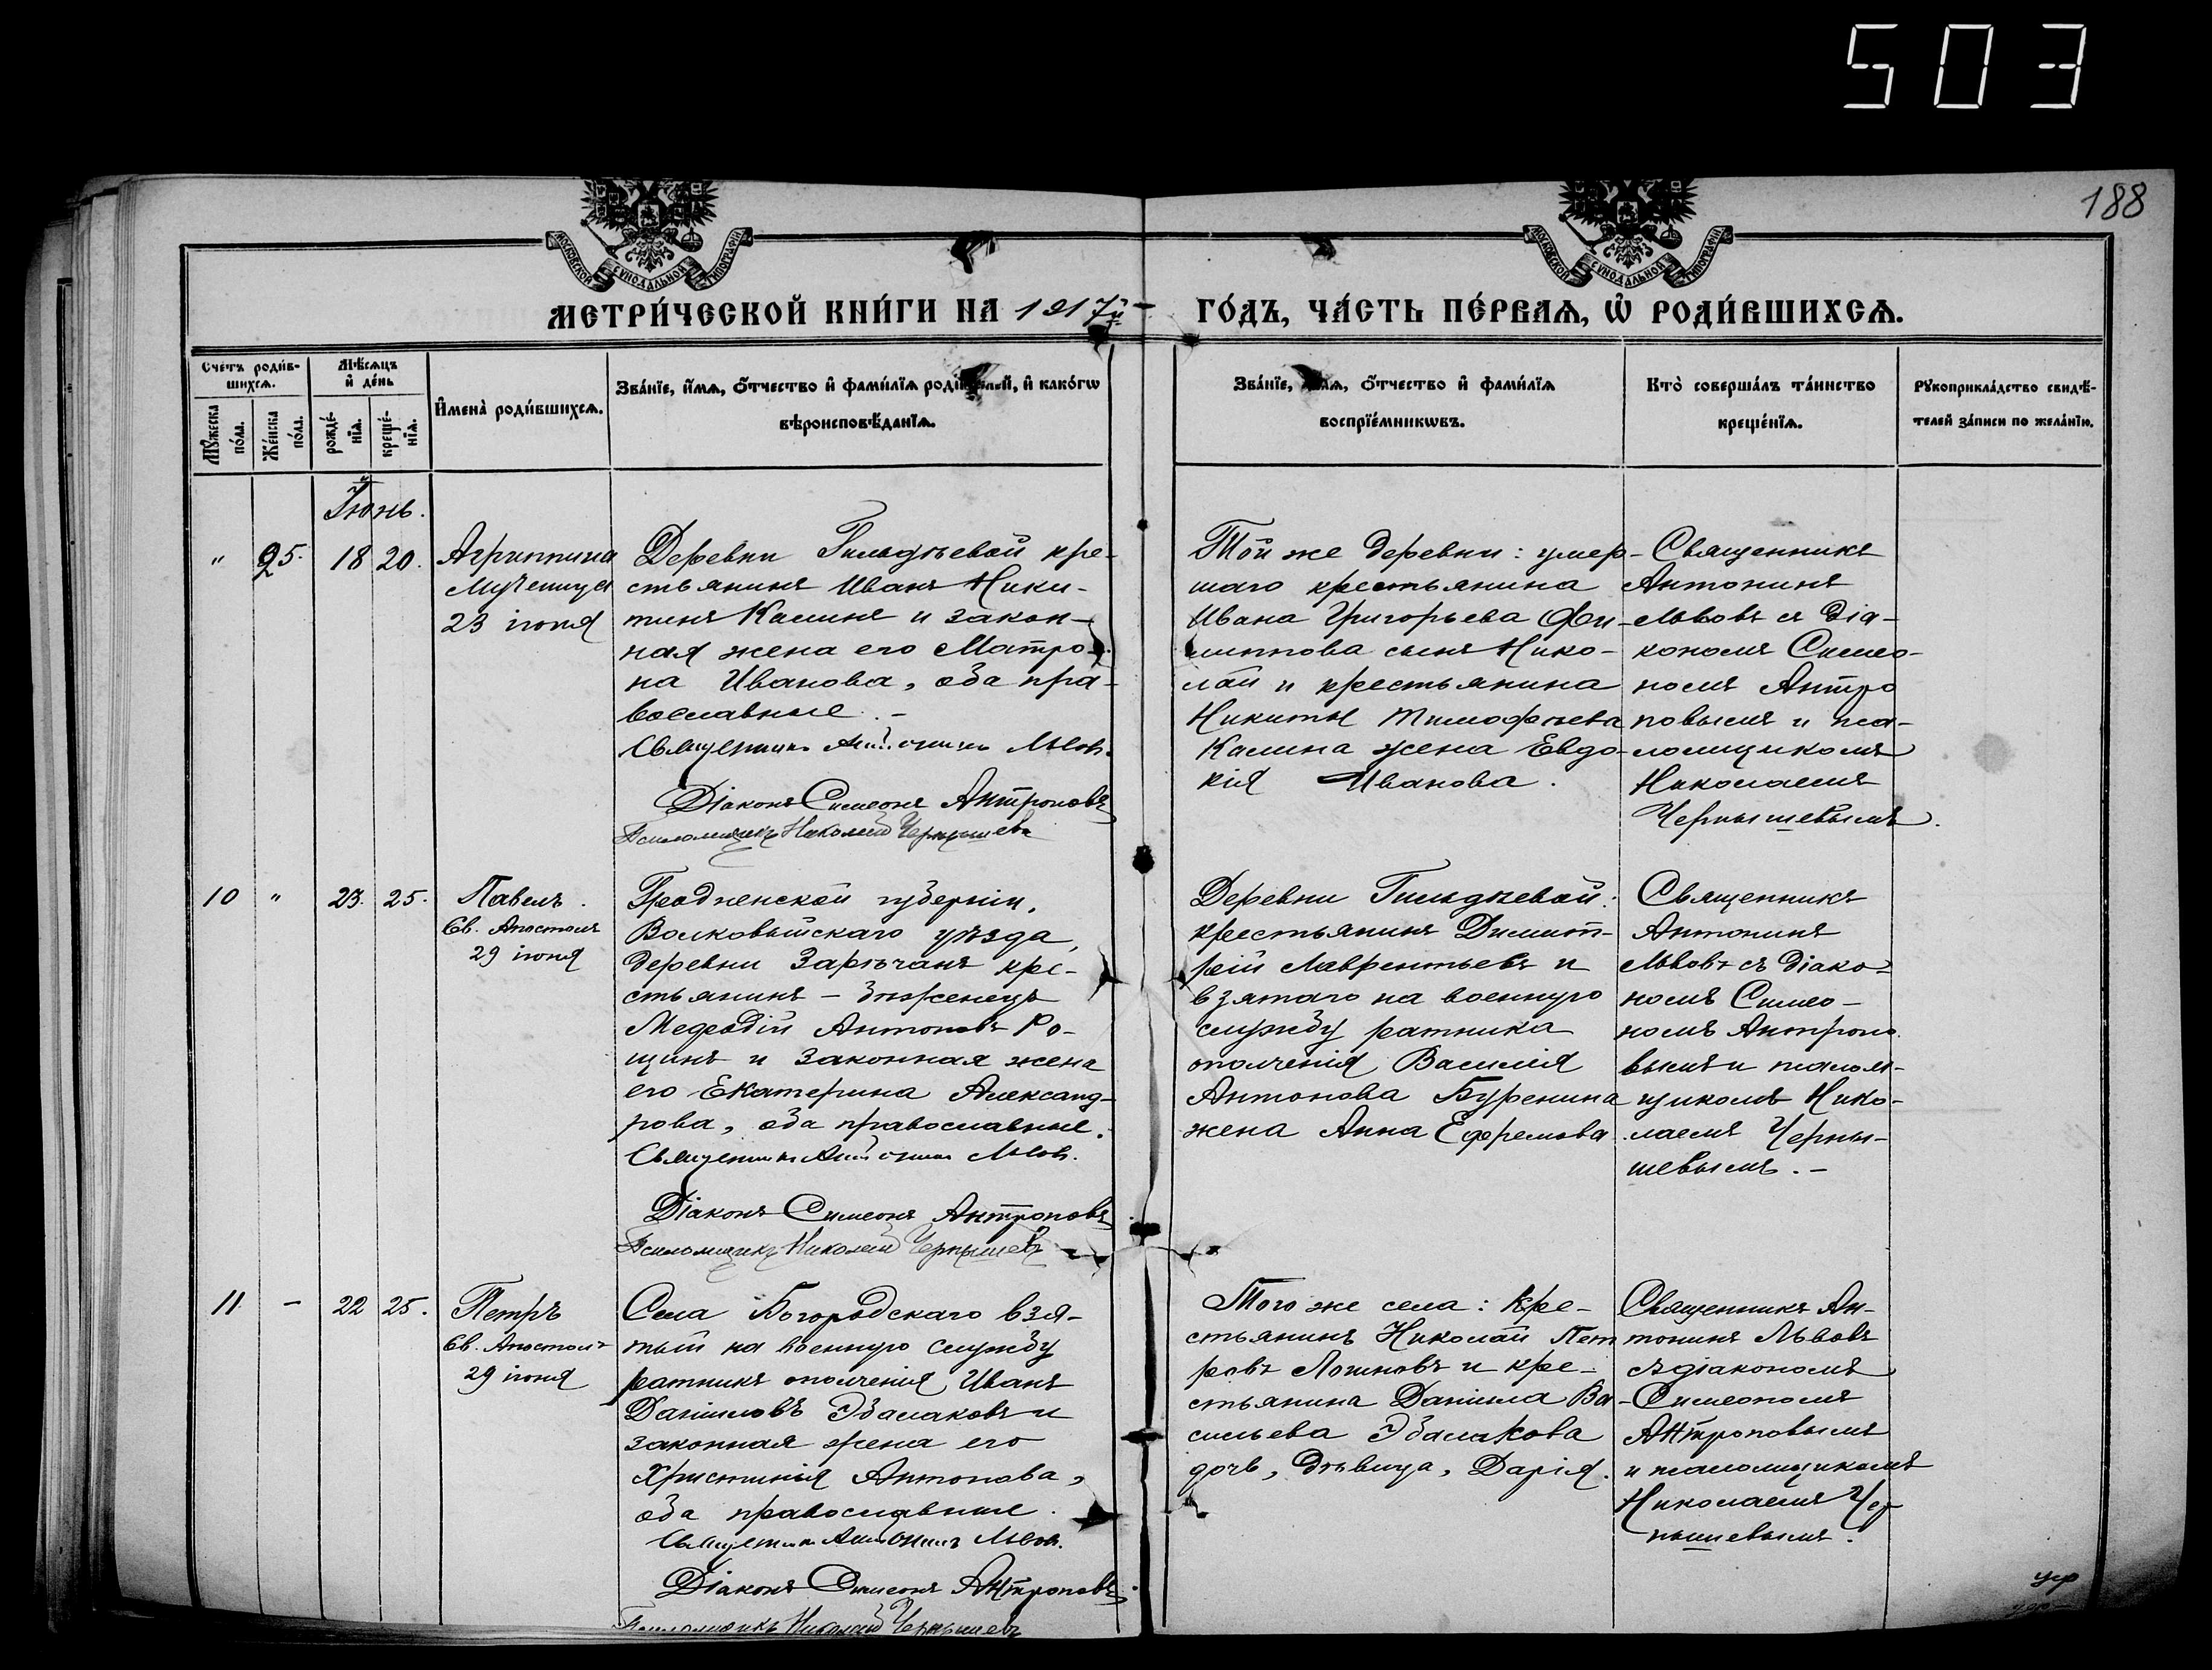 503
188
МОСКОВСКОЙ СѴНОДАЛЬНОЙ ТИПОГРАФІИ
МОСКОВСКОЙ СѴНОДАЛЬНОЙ ТИПОГРАФІИ
МЕТРИ́ЧЕСКОЙ КНИ́ГИ НА 1917й
ГО́ДЪ, ЧА́СТЬ ПЕ́РВАѦ, Ѡ РОДИ́ВШИХСѦ.
Сче́тъ роди́в-
шихсѧ.
Мꙋ́жеска
по́ла.
Же́нска
по́ла.
Мѣ́сѧцъ
и҆ де́нь
рожде́-
нїѧ.
креще́-
нїѧ.
И҆мена̀ роди́вшихсѧ.
Зва́нїе, и҆́мѧ, ѻ҆́тчество и҆ фами́лїѧ роди́телей, и҆ како́гѡ
вѣроисповѣ́данїѧ.
Зва́нїе, и҆́мѧ, ѻ҆́тчество и҆ фами́лїѧ
воспрїе́мникѡвъ.
Кто̀ соверша́лъ та́инство
креще́нїѧ.
Рꙋкоприкла́дство свидѣ́-
телей за́писи по жела́нїю.
Іюнь.
" 25. 18 20.
Агриппина
Мученица
23 іюня
Деревни Гильдѣевой кре-
стьянинъ Иванъ Ники-
тинъ Калинъ и закон-
ная жена его Матро-
на Иванова, оба пра-
вославные. –
Священникъ Антонинъ Львовъ.
Діаконъ Симеонъ Антроповъ
Псаломщикъ Николай Чернышевъ
Той же деревни: умер-
шаго крестьянина
Ивана Григорьева Фи-
липпова сынъ Нико-
лай и крестьянина
Никиты Тимофѣева
Калина жена Евдо-
кія Иванова.
Священникъ
Антонинъ
Львовъ съ діа-
кономъ Симео-
номъ Антро
повымъ и пса-
ломщикомъ
Николаемъ
Чернышевымъ.
10 " 23. 25.
Павелъ.
Св. Апостолъ
29 іюня
Гродненской губерніи,
Волковыйскаго уѣзда,
деревни Зарѣчанъ кре-
стьянинъ – бѣженецъ
Меѳодій Антоновъ Ро-
щинъ и законная жена
его Екатерина Александ-
рова, оба православные.
Священникъ Антонинъ Львовъ.
Діаконъ Симеонъ Антроповъ
Псаломщикъ Николай Чернышевъ
Деревни Гильдѣевой:
крестьянинъ Димит-
рій Лаврентьевъ и
взятаго на военную
службу ратника
ополченія Василія
Антонова Буренина
жена Анна Ефремова
Священникъ
Антонинъ
Львовъ съ діако-
номъ Симео-
номъ Антропо
вымъ и псалом-
щикомъ Нико-
лаемъ Черны-
шевымъ. –
11 – 22 25.
Петръ
Св. Апостолъ
29 іюня
Села Богородскаго взя-
тый на военную службу
ратникъ ополченія Иванъ
Даниловъ Абалаковъ и
законная жена его
Христинія Антонова,
оба православные.
Священникъ Антонинъ Львовъ.
Діаконъ Симеонъ Антроповъ.
Псаломщикъ Николай Чернышевъ
Того же села: кре-
стьянинъ Николай Пет
ровъ Логиновъ и кре-
стьянина Даніила Ва-
сильева Абалакова
дочь, дѣвица, Дарія.
Священникъ Ан-
тонинъ Львовъ
съ діакономъ
Симеономъ
Антроповымъ
и псаломщикомъ
Николаемъ Чер
нышевымъ.